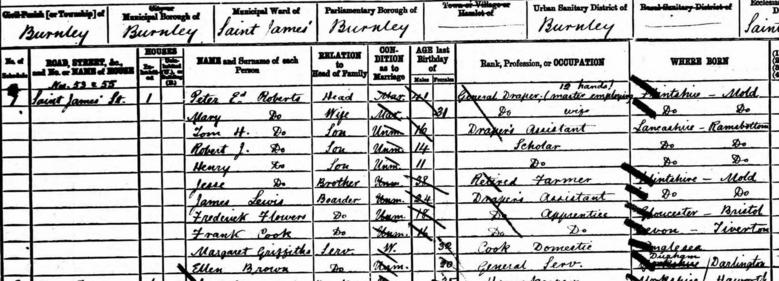 Civil Parish [or Township] of Municipal Borough of Municipal Ward of Parliamentary Borough of Town or Village or Hamlet of Urban Sanitary District of Rural Sanitary District of
Burnley Burnley Saint James' Burnley Burnley
No. of Schedule ROAD, STREET, &c., and No. or NAME of HOUSE HOUSES NAME and Surname of each Person RELATION to Head of Family CONDITION as to Marriage AGE last Birthday of Males Females Rank, Profession, or OCCUPATION WHERE BORN
Nos. 53 & 55 12 hands)
7 Saint James' St. 1 Peter Ed Roberts Head Mar. 41 General Draper, (master employing Flintshire - Mold
Mary Do Wife Mar. 31 Do wife Do Do
Tom H. Do Son Unm. 16 Draper's Assistant Lancashire - Ramsbottom
Robert J. Do Son Unm. 14 Scholar Do Do
Henry Do Son Unm. 11 Do Do Do
Jesse Do Brother Unm. 38 Retired Farmer Flintshire - Mold
James Lewis Boarder Unm. 24 Draper's Assistant Do Do
Frederick Flowers Do Unm. 18 Do Apprentice Gloucester - Bristol
Frank Cook Do Unm. 16 Do Do Devon - Tiverton
Margaret Griffiths Serv. W. Cook Domestic Anglesea
Ellen Brown Do Unm. General Serv. Durham Darlington
Yorkshire Haworth